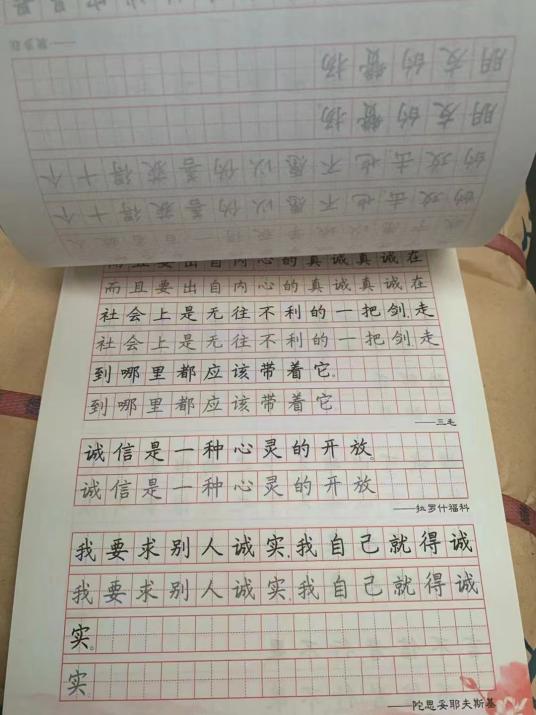 朋友的赞扬
朋友的赞扬
的攻击也不愿以伪善获得十个
的攻击也不愿以伪善获得十个
而且要出自内心的真诚真诚在
而且要出自内心的真诚真诚在
社会上是无往不利的一把剑,走
社会上是无往不利的一把剑,走
到哪里都应该带着它。
到哪里都应该带着它
——三毛
诚信是一种心灵的开放。
诚信是一种心灵的开放
——拉罗什福科
我要求别人诚实,我自己就得诚
我要求别人诚实,我自己就得诚
实。
实
——陀思妥耶夫斯基